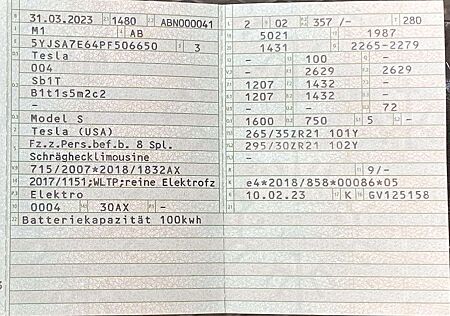 31.03.2023 1480 ABN000041
M1 AB
5YJSA7E64PF506650 3
Tesla
004
Sb1T
B1t1s5m2c2
-
Model S
Tesla (USA)
Fz.z.Pers.bef.b. 8 Spl.
Schräghecklimousine
715/2007*2018/1832AX
2017/1151;WLTP;reine Elektrofz
Elektro
0004 30AX -
Batteriekapazität 100kwh
2 02 357 /- 280
5021 1987
1431 2265-2279
- 100 -
- 2629 2629
1207 1432 -
1207 1432 -
- - 72
1600 750 5 -
265/35ZR21 101Y
295/30ZR21 102Y
-
9/-
e4*2018/858*00086*05
10.02.23 K GV125158